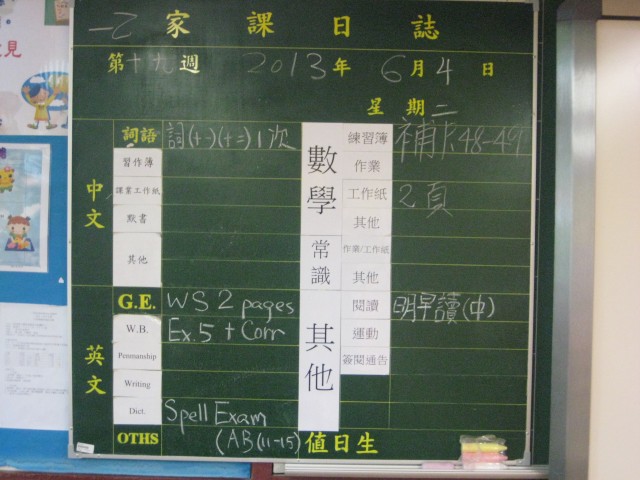 一乙 家課日誌
第十九週 2013年 6月4日
星期二
中文
詞語 詞(十一)(十二)1次
習作簿
課業工作紙
默書
其他
英文
G.E. WS 2 pages
W.B. Ex.5 + Corr
Penmanship
Writing
Dict. Spell Exam
OTHS (AB(11-15)
數學
練習簿 補充48-49
作業
工作紙 2頁
其他
常識
作業/工作紙
其他
其他
閱讀 明早讀(中)
運動
簽閱通告
值日生
見